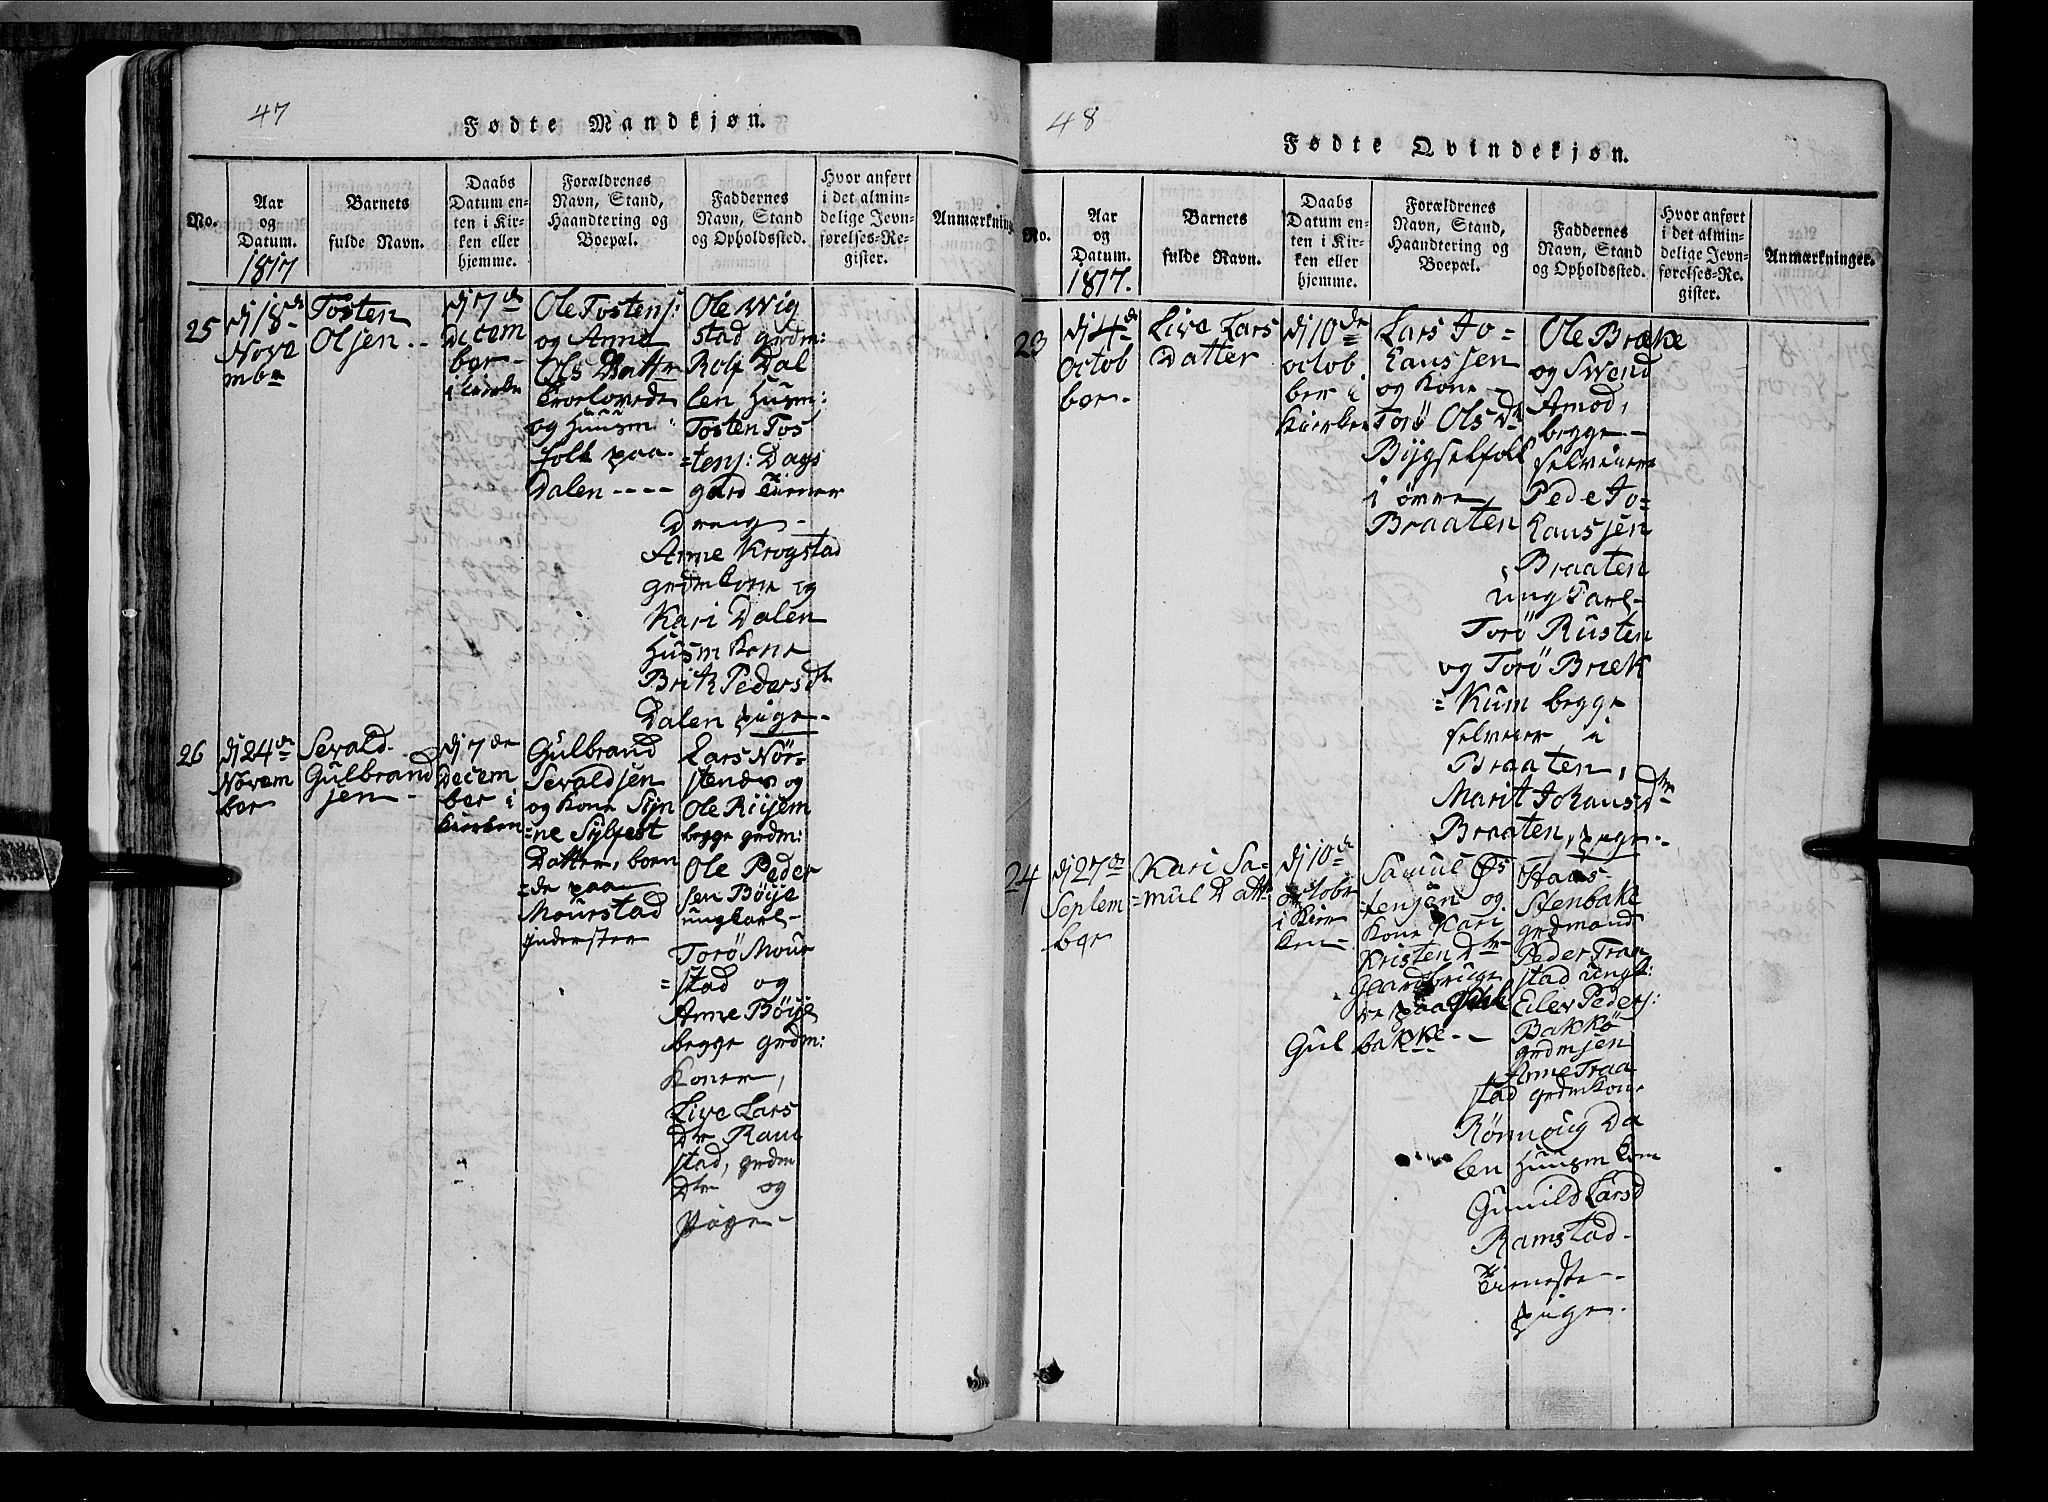 47
Fødte Mandkjøn.
No.
Aar
og
Datum.
1817
Barnets
fulde Navn.
Daabs
Datum en-
ten i Kir-
ken eller
hjemme.
Forældrenes
Navn, Stand,
Haandtering og
Boepæl.
Faddernes
Navn, Stand
og Opholdssted.
Hvor anført
i det almin-
delige Jevn-
førelses-Re-
gister.
Anmærkninge
25
dj 18de
Nove
mber
Tosten
Olsen
dj 7de
Decem
ber
i kirke
Ole Tostens:
og Anne
Ols Datter
Troelovede
og Huusm
folk paa
Dalen
Ole Wig
stad grdm:
Rolf Dal
len Husm:
Tosten Tos
=tens: Dags
gard Tiener
Dreng
Anne Krogstad
grdmkone og
Kari Dalen
Husm kone
Brit Pedersdtr
Dalen pige
26
dj 24de
Novem
ber
Sevald
Gulbrand
sen
dj 7de
Decem
ber i
kierken
Gulbrand
Sevaldsen
og kone Sijn
=ne Sylfest
Datter, boen
=de paa
Mourstad
Inderster
Lars Nör-
stenæs og
Ole Rüsem
begge grdm:
Ole Peder
sen Böye
ungkarl
Torö Mour
=stad og
Anne Böye
begge grdm:
Koner,
Live Lars
Dtr Ram
stad, grdm
Dtr og
Pige
48
Fødte Qvindekjøn.
No.
Aar
og
Datum.
1817.
Barnets
fulde Navn.
Daabs
Datum en-
ten i Kir-
ken eller
hjemme.
Forældrenes
Navn, Stand,
Haandtering og
Boepæl.
Faddernes
Navn, Stand
og Opholdssted.
Hvor anført
i det almin-
delige Jevn-
førelses-Re-
gister.
Anmærkninger.
23
dj 4de
Octob
ber
Live Lars
Datter
dj 10de
octob
ber i
Kierken
Lars Jo=
hanssen
og Kone
Torö Ols Dtr
Bijgselfolk
i övre
Braaten
Ole Bræke
og Swend
Amod,
begge
selveiere
Pede Jo=
hanssen
Braaten
ung Karl
Torö Rusten
og Torö Bræk
=Kum begge
selveier i
Braaten,
Marit Johansdtr
Braaten, pige
24
dj 27de
Septem
ber
Kari Sa=
=mul Datt
dj 10de
octobr
i kier
ken
Samul Øs
tensen og
Kone Kari
Kristen Dtr
Gaardbruge
re paa
Gul bakke
Haas
Stenbake
grdmand
Peder Traa
stad ungk:
Eilev Peders:
Bakkö
grdmsen
Anne Traa
stad grdmkone
Rönnoug Da
len Huusm kone
Gunild Larsd
Ramstad
Tieneste
pige